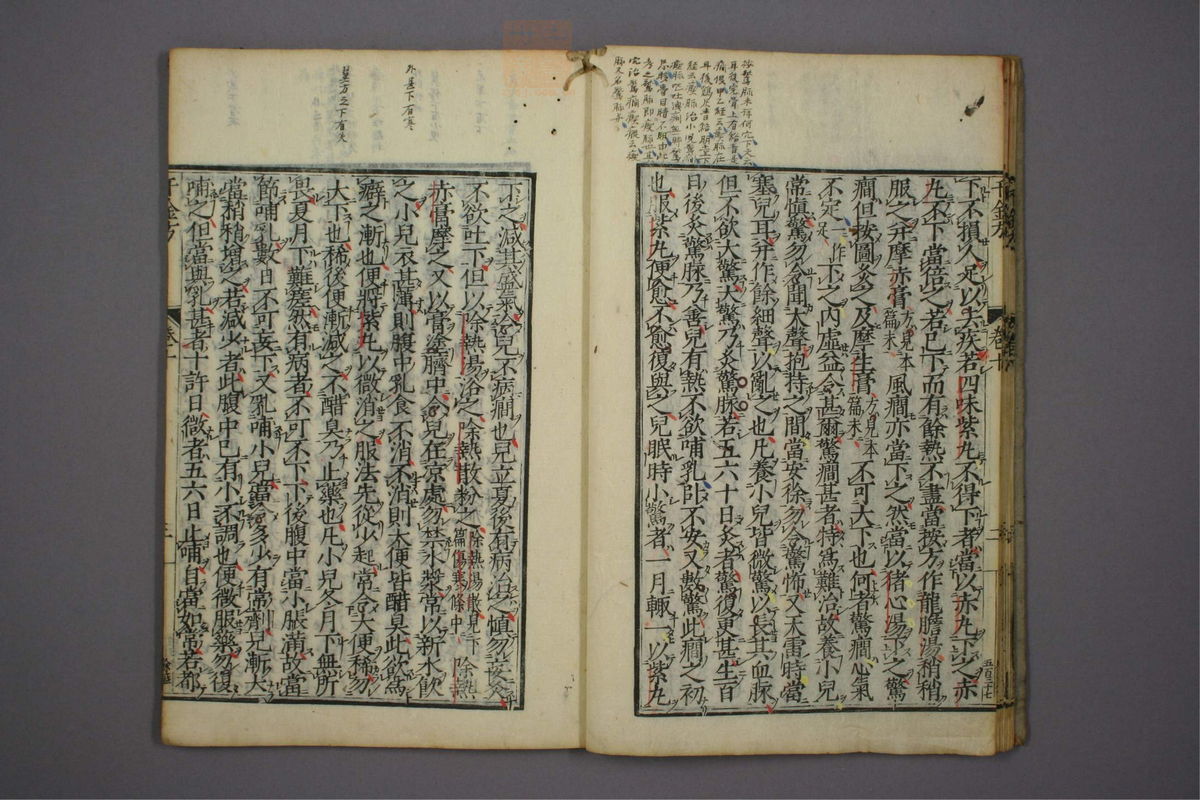 千金方
卷十
下不損人足以去疾若四味紫丸不得下者當以赤丸下之赤
丸不下當倍之若已下而有餘熱不盡當按方作龍膽湯稍稍
服之并摩赤膏方見本篇末風癇亦當下之然當以猪心湯下之驚
癇但按圖灸之及摩生膏方見本篇末不可大下也何者驚癇心氣
不定一作足下之內虛益令甚爾驚癇甚者特爲難治故養小兒
常愼驚勿令聞大聲抱持之間當安徐勿令驚怖又天雷時當
塞兒耳并作餘細聲以亂之也凡養小兒皆微驚以長其血脉
但不欲大驚大驚乃灸驚脉若五六十日灸者驚復更甚生百
日後灸驚脉乃善兒有熱不欲哺乳卧不安又數驚此癇之初
也服紫丸便愈不愈復與之兒眠時小驚者一月輒一以紫丸
下之減其盛氣令兒不病癇也兒立夏後有病治之愼勿妄灸
不欲吐下但以除熱湯浴之除熱散粉之除熱湯散見下篇傷寒條中除熱
赤膏摩之又以膏塗臍中令兒在凉處勿禁水漿常以新水飮
之小兒衣甚薄則腹中乳食不消不消則大便皆醋臭此欲爲
癖之漸也便將紫丸以微消之服法先從少起常令大便稀勿
大下也稀後便漸減之不醋臭乃止藥也凡小兒冬月下無所
畏夏月下難瘥然有病者不可不下下後腹中當小脹滿故當
節哺乳數日不可妄下又乳哺小兒當令多少有常劑兒漸大
當稍稍增之若減少者此腹中已有小不調也便微服藥勿復
哺之但當與乳甚者十許日微者五六日止哺自當如常若都
外臺下有寒